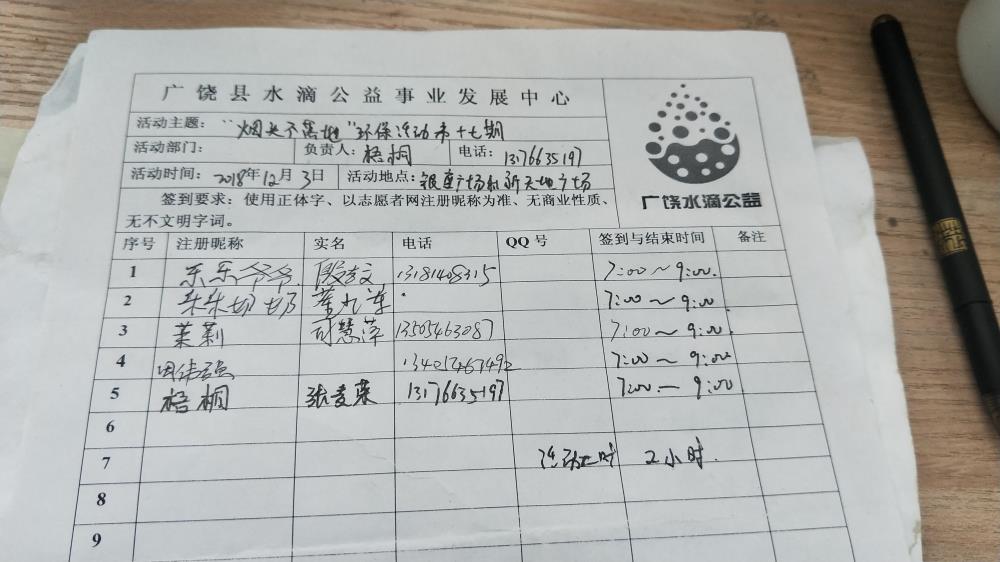 广饶县水滴公益事业发展中心
活动主题：“烟头不落地”环保活动第十七期
活动部门： 负责人：梧桐 电话：13176635197
活动时间：2018年12月3日 活动地点：银座广场和新天地广场
签到要求：使用正体字、以志愿者网注册昵称为准、无商业性质、
无不文明字词。
广饶水滴公益
序号 注册昵称 实名 电话 QQ号 签到与结束时间 备注
1 乐乐爷爷 13181408315 7:00～9:00.
2 朱朱奶奶 7:00～9:00
3 茉莉 13505463087 7:00～9:00.
4 13405467492 7:00～9:00
5 梧桐 张爱菜 13176635197 7:00—9:00
6
7 活动工时 2小时.
8
9